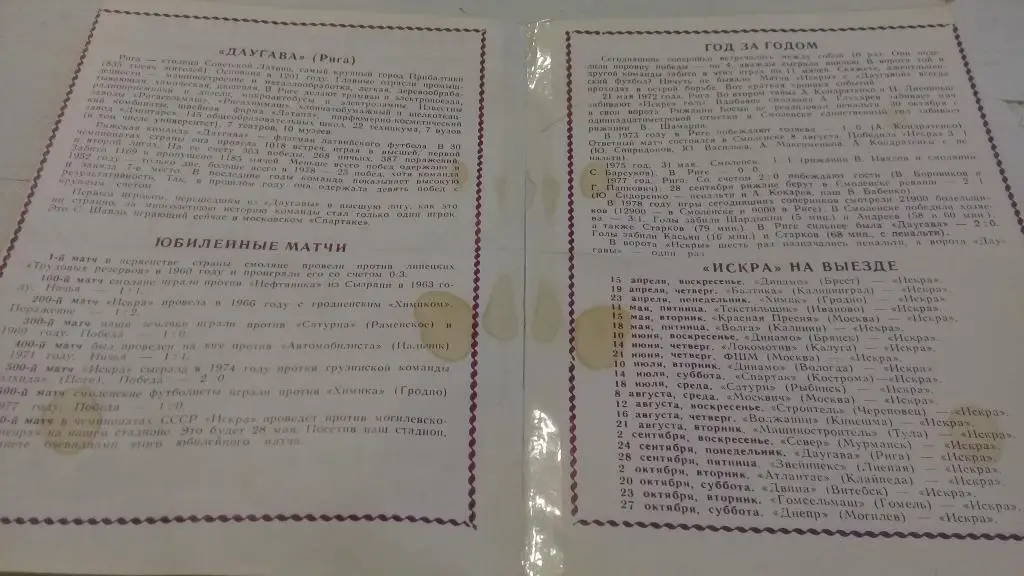 «ДАУГАВА» (Рига)
Рига — столица Советской Латвии, самый крупный город Прибалтики
(835 тысяч жителей). Основана в 1201 году. Главные отрасли промыш-
ленности — машиностроение и металлообработка, легкая, деревообраба-
тывающая, химическая, пищевая. В Риге делают трамваи и электровозы,
радиоприемники и
заводы
комбинаты, швейная фирма «Латвия», парфюмерно-косметический
145 общеобразовательных школ, 22 техникума, 7 вузов
(в том числе университет), 7 театров, 10 музеев.
Рижская команда «Даугава» — флагман латвийского футбола. В 30
чемпионатах страны она провела 1018 встреч, играя в высшей, первой
и второй лигах. На ее счету 363 победы, 268 ничьих, 387 поражений.
Забито 1169 и пропущено 1185 мячей. Меньше всего побед одержано в
1952 — только две, больше всего в 1978 — 23 побед, хотя команда
и заняла 7-е место. В последние годы команда показывает высокую
результативность. Так, в прошлом году она одержала девять побед с
крупным счетом.
Первым игроком, перешедшим из «Даугавы» в высшую лигу, как это
ни странно, за многолетнюю историю команды стал только один игрок.
Это С. Шавло, играющий сейчас в московском «Спартаке».
ЮБИЛЕЙНЫЕ МАТЧИ
1-й матч в первенстве страны смоляне провели против липецких
«Трудовых резервов» в 1960 году и проиграли его со счетом 0:3.
100-й матч смоляне играли против «Нефтяника» из Сызрани в 1963 го-
ду. Ничья — 1:1.
200-й матч «Искра» провела в 1966 году с гродненским «Химиком».
Поражение — 1:2.
300-й матч наши земляки играли против «Сатурна» (Раменское) в
1969 году. Победа — 1:0.
400-й матч был проведен на юге против «Автомобилиста» (Нальчик)
1971 году. Ничья — 1:1.
500-й матч «Искра» сыграла в 1974 году против грузинской команды
(Поти). Победа — 2:0
600-й матч смоленские футболисты играли против «Химика» (Гродно)
1977 году. Победа — 1:0.
0-й матч в чемпионатах СССР «Искра» проведет против могилевско-
на нашем стадионе. Это будет 28 мая. Посетив наш стадион,
очевидцами этого юбилейного матча.
ГОД ЗА ГОДОМ
Сегодняшние соперники встречались между собой 10 раз. Они поде-
лили поровну победы — по 4, дважды сыграли вничью. В ворота той и
другой команды забито в этих играх по 11 мячей. Скажете, динамов-
ский футбол? Ничуть не бывало. Матчи «Искры» с «Даугавой» всегда
проходят в острой борьбе. Вот краткая хроника событий.
21 мая 1972 года. Рига. Во втором тайме А. Кондратенко и Н. Лисенный
забивают «Искре» голы. Вдобавок смолянин А. Глухарев забивает мяч
в свои ворота. Рижанин Босый не реализовал пенальти. 30 октября с
одиннадцатиметровой отметки в Смоленске единственный гол забивает
рижанин В. Шамарин.
В 1973 году в Риге побеждают хозяева — 1:0 (А. Кондратенко)
Ответный матч состоялся в Смоленске 8 августа. Победила «Искра» 3:1
(Ю. Свиридонов, Ю. Васильев, А. Максименков, А. Кондратенко с пе-
нальти).
1975 год. 31 мая. Смоленск — 1:1 (рижанин В. Ивахин и смолянин
С. Барсуков). В Риге — 0:0.
1977 год. Рига. Со счетом 2:0 побеждают гости (В. Боровиков и
Г. Папкович). 28 сентября рижане берут в Смоленске реванш — 2:1
(Ю. Сидоренко — пенальти и А. Кокарев, наш В. Бабенко).
В 1978 году игры сегодняшних соперников смотрели 21900 болельщи-
ков (12900 — в Смоленске и 9000 в Риге). В Смоленске победили хозяе-
ва — 3:1. Голы забили Шардыкин (5 мин.) и Андреев (58 и 60 мин.),
а также Старков (79 мин.). В Риге сильнее была «Даугава» — 2:0.
Голы забили Каськин (15 мин.) и Старков (68 мин., с пенальти).
В ворота «Искры» шесть раз назначались пенальти, а ворота «Дау-
гавы» — один раз.
«ИСКРА» НА ВЫЕЗДЕ
15 апреля, воскресенье. «Динамо» (Брест) — «Искра».
19 апреля, четверг. «Балтика» (Калининград) — «Искра».
23 апреля, понедельник. «Химик» (Гродно) — «Искра».
11 мая, пятница. «Текстильщик» (Иваново) — «Искра».
15 мая, вторник. «Красная Пресня» (Москва) — «Искра».
18 мая, пятница. «Волга» (Калинин) — «Искра».
10 июня, воскресенье. «Динамо» (Брянск) — «Искра».
14 июня, четверг. «Локомотив» (Калуга) — «Искра».
21 июня, четверг. ФШМ (Москва) — «Искра».
10 июля, вторник. «Динамо» (Вологда) — «Искра».
14 июля, суббота. «Спартак» (Кострома) — «Искра».
18 июля, среда. «Сатурн» (Рыбинск) — «Искра».
8 августа, среда. «Москвич» (Москва) — «Искра».
12 августа, воскресенье. «Строитель» (Череповец) — «Искра».
16 августа, четверг. «Волжанин» (Кинешма) — «Искра».
21 августа, вторник. «Машиностроитель» (Тула) — «Искра».
2 сентября, воскресенье. «Север» (Мурманск) — «Искра».
24 сентября, понедельник. «Даугава» (Рига) — «Искра».
28 сентября, пятница. «Звейниекс» (Лиепая) — «Искра».
2 октября, вторник. «Атлантас» (Клайпеда) — «Искра».
20 октября, суббота. «Двина» (Витебск) — «Искра».
23 октября, вторник. «Гомсельмаш» (Гомель) — «Искра».
27 октября, суббота. «Днепр» (Могилев) — «Искра».